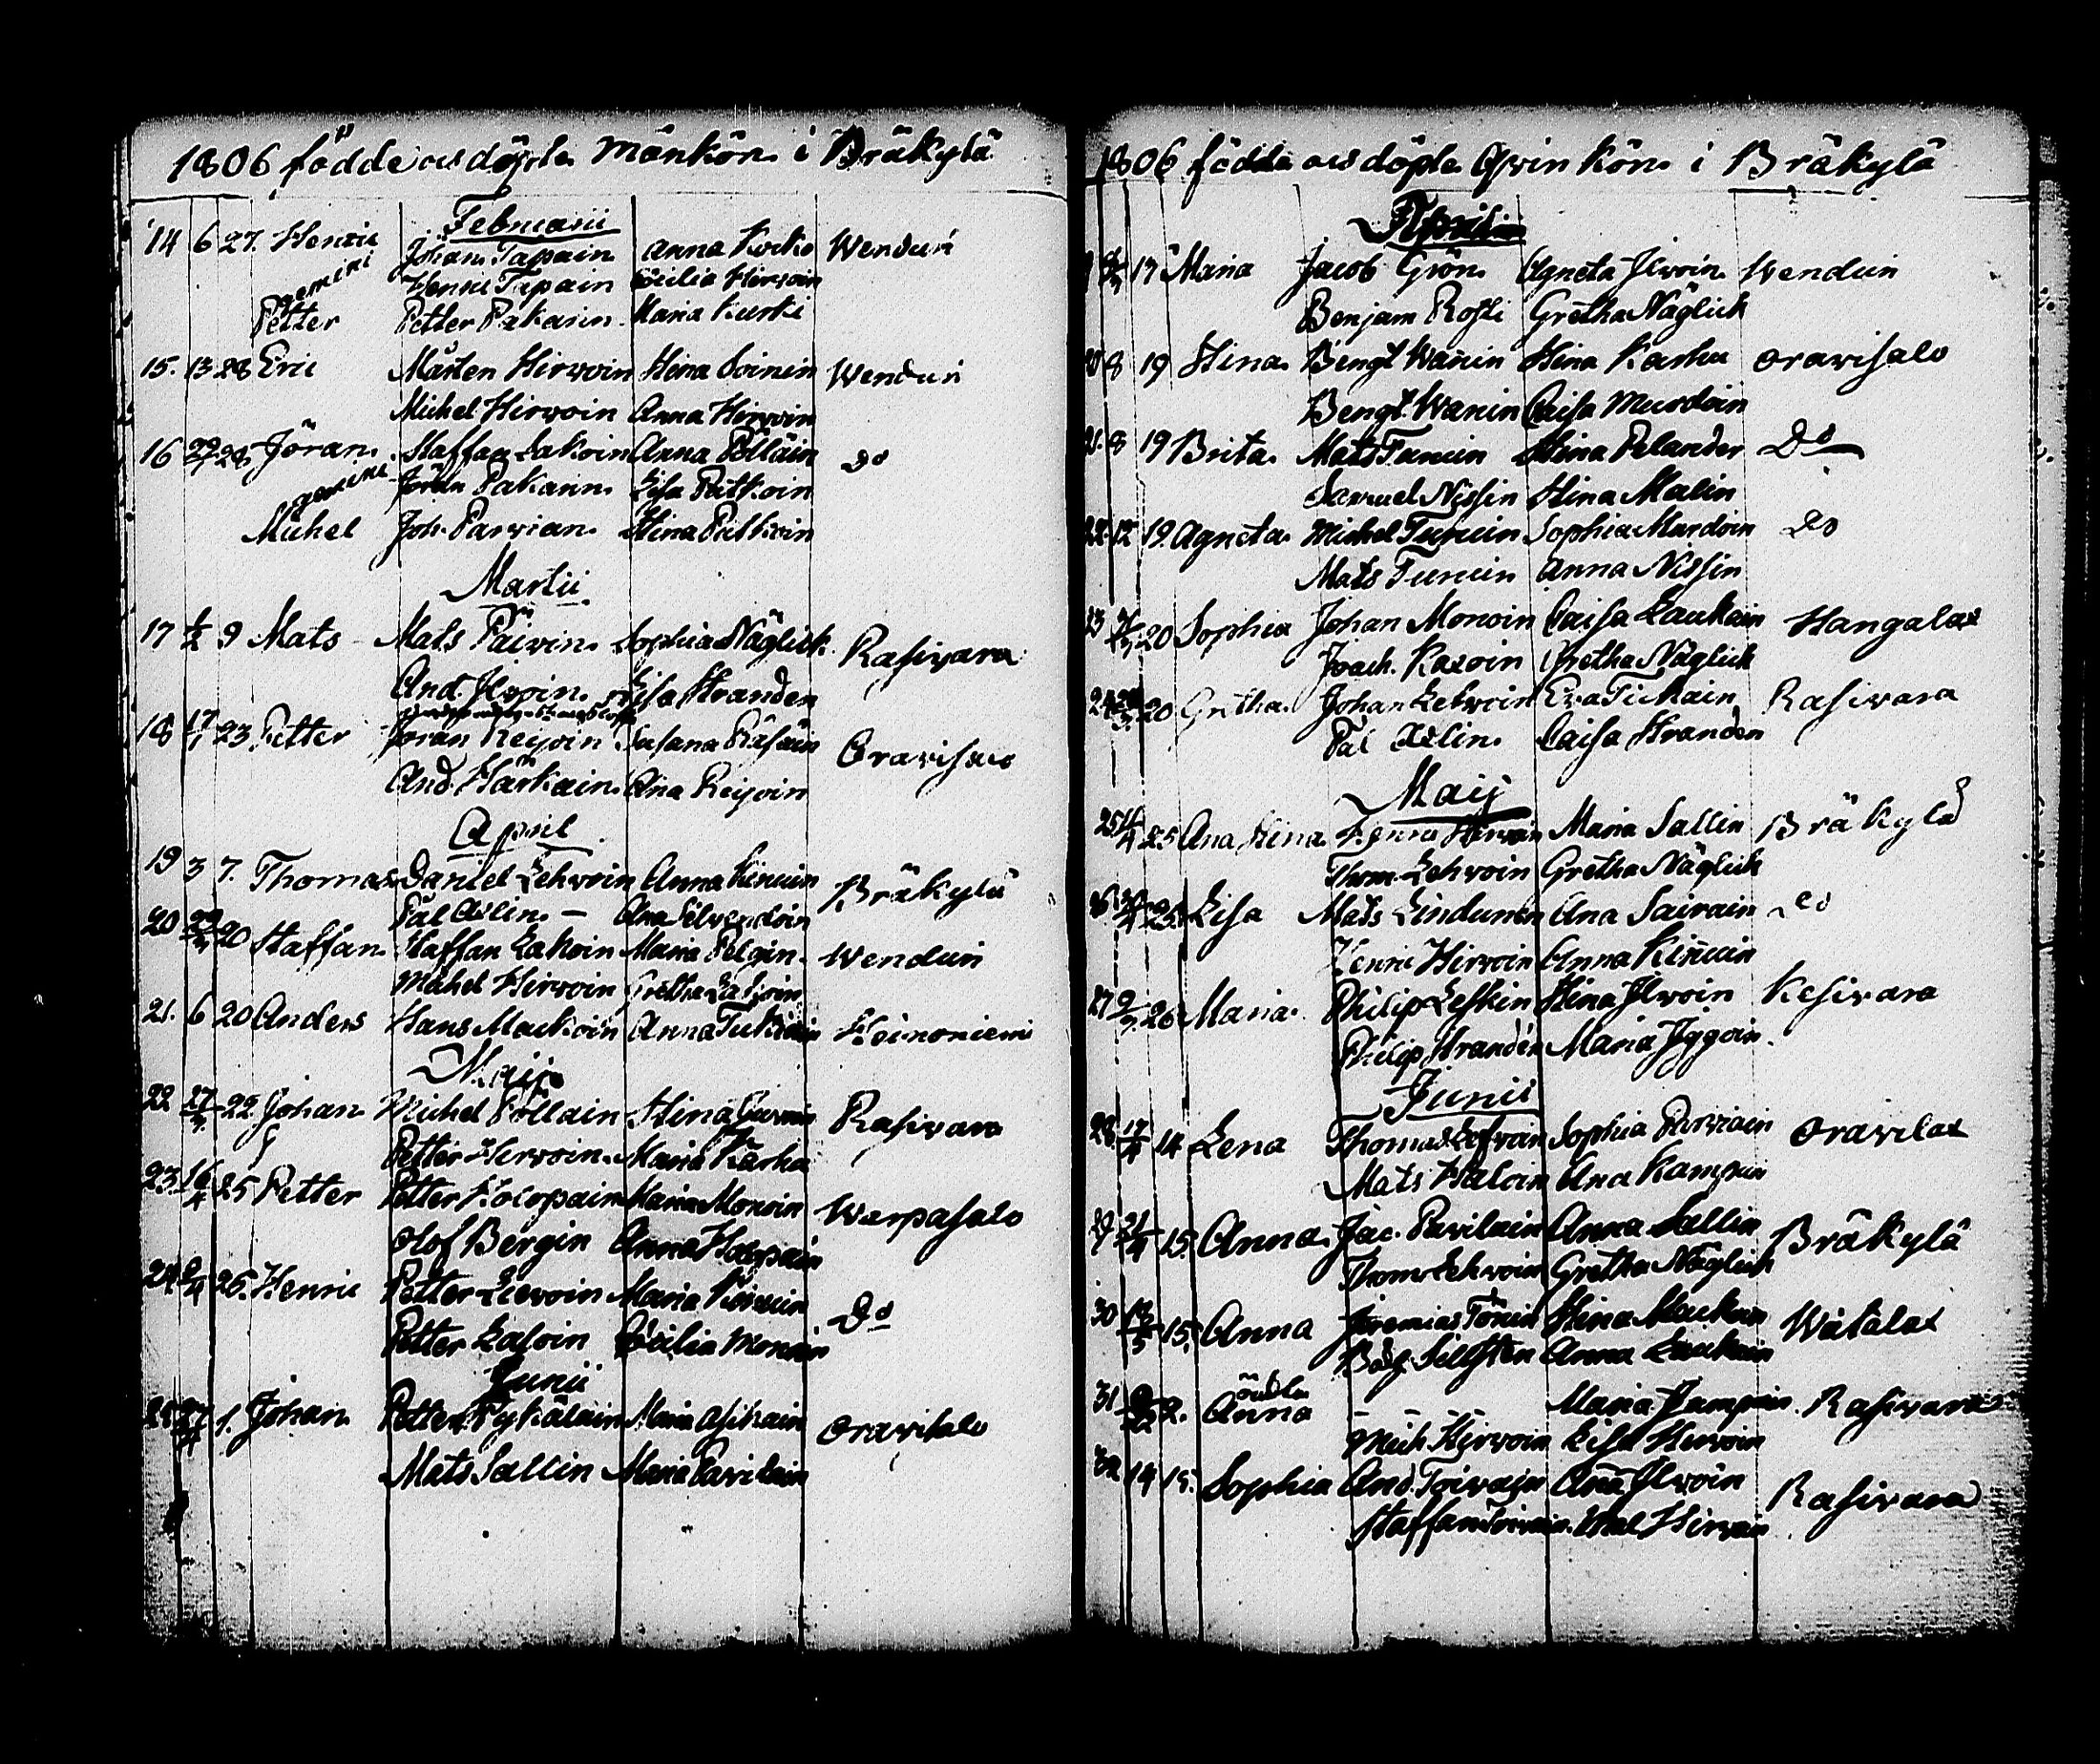 1806 födde och döpte Mankön i Bräkylä
Februarii
14 6 27. Henric Johan Tapain Anna Kurki Wendun
gemini Henric Tapain Cecilia Hirvoin
Petter Petter Pakarin Maria Kurki
15. 13 28 Eric Mårten Hirvoin Hena Soinin Wendun
Michel Hirvoin Anna Hirvoin
16 28 Jöran Staffan Lakoin Anna Pölläin do
gemini Jöran Pakarin Lisa Putkoin
Michel Joh. Parvian Stina Putkoin
Martii
17 9 Mats Mats Päivin Sophia Näglick Rasivara
And. Ilvoin Lisa Stranden
18 17/1 23 Petter Jöran Reijoin Susana Räsäin Oravisalo
And. Härkain Ana Reijoin
April
19 3 7. Thomas Daniel Lehvoin Anna Kinnuin Bräkylä
Pål Adlin – Ana Silvendoin
20 20 Staffan Staffan Lakoin Maria Pelgin Wendun
Michel Hirvoin Gretha
21. 6 20 Anders Hans Muckoin Anna Tuckiain Heinoniemi
Maij
22 27 22 Johan Michel Pöllain Stina Rasivara
Petter Hirvoin Maria Karha
23. 16/4 25 Petter Petter Holopain Maria Monoin Warpasalo
Olof Bergin Anna Holopain
24 26. Henric Petter Maria Do
Petter Lasoin Cecilia Monoin
Junii
25 27/4 1. Johan Petter Pykäläin Maria Asikain Oravisalo
Mats Sallin Maria Pavilain
1806 födda och döpta Qvinkön i Bräkylä
Aprilis
17 Maria Jacob Grön Agneta Ilvoin Wendun
Benjam Rosti Gretha Näglick
20 8 19 Stina Bengt Wanin Stina Karhu Oravisalo
Bengt Wanin Caisa Murdoin
21. 8 19 Brita Mats Turuin Stina Pelander Do
Samuel Nissin Stina Malin
22 12 19. Agneta Michel Turuin Sophia Murdoin Do
Mats Turuin Anna Nissin
23 20 Sophia Johan Monoin Caisa Laukain Hangalax
Joach. Kasoin Gretha Näglick
24 20 Gretha Johan Lehvoin Eva Tickain Rasivara
Pål Adlin Caisa Stranden
Maij
25 25 Ana Stina Henric Hirvoin Maria Sallin Bräkylä
Thom. Lehvoin Gretha Näglick
26 25. Lisa Mats Lindunen Ana Sairain do
Henric Hirvoin Anna Kinnuin
27 26 Maria Philip Leskin Stina Ilvoin Kesivara
Philip Stranden Maria
Junii
28 17/4 14 Lena Thomas Lehvoin Sophia Parviain Oravilax
Mats Haloin Ana Kampuin
29 15. Anna Jac. Pavilain Anna Sallin Bräkylä
Thom. Lehvoin Gretha Näglick
30 15. Anna Jeremias Tönin Stina Muckoin Watalax
Sillsten Anna Laukain
31 2. oäkta Anna Maria Rasivara
Mich. Hirvoin Lisa Hirvoin
32 14 15. Sophia And. Toivain Ana Ilvoin Rasivara
Staffan Toivain Hirvoin